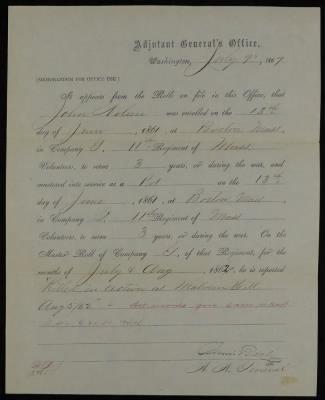 Adjutant General's Office,
Washington, July 9th, 1867.
[MEMORANDUM FOR OFFICE USE.]
It appears from the Roll on file in this Office, that
John Nolan was enrolled on the 13th
day of June, 1861, at Boston Mass,
in Company I, 11th Regiment of Mass
Volunteers, to serve 3 years, or during the war, and
mustered into service as a Pvt on the 13th
day of June, 1861, at Boston Mass,
in Company I, 11th Regiment of Mass
Volunteers, to serve 3 years, or during the war. On the
Muster Roll of Company I, of that Regiment, for the
months of July & Aug, 1862, he is reported
Killed in action at Malvern Hill
Aug 5/62
A. A. General